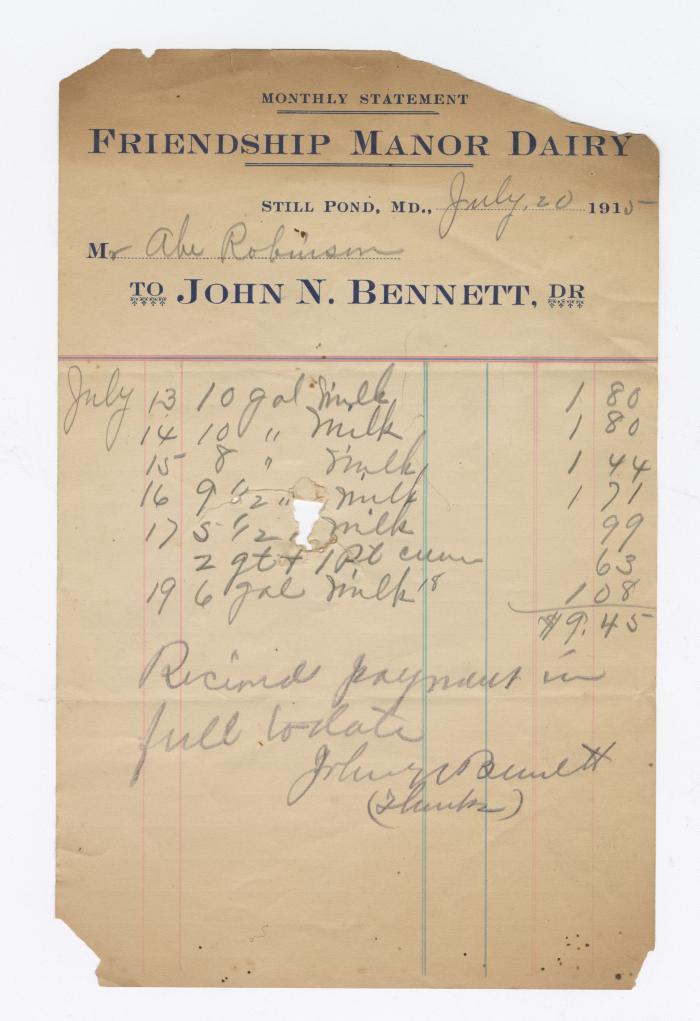 MONTHLY STATEMENT
FRIENDSHIP MANOR DAIRY
STILL POND, MD., July, 20 1915
Mr Abe Robinson
TO JOHN N. BENNETT, DR
July 13 10 gal Milk 1 80
14 10 " Milk 1 80
15 8 " Milk 1 44
16 9 1/2 " Milk 1 71
17 5 1/2 " Milk 99
2 qt + 1 Pt cream 63
19 6 gal Milk 18 1 08
$9.45
Recieved payment in
full to date
John N Bennett
(Thanks)